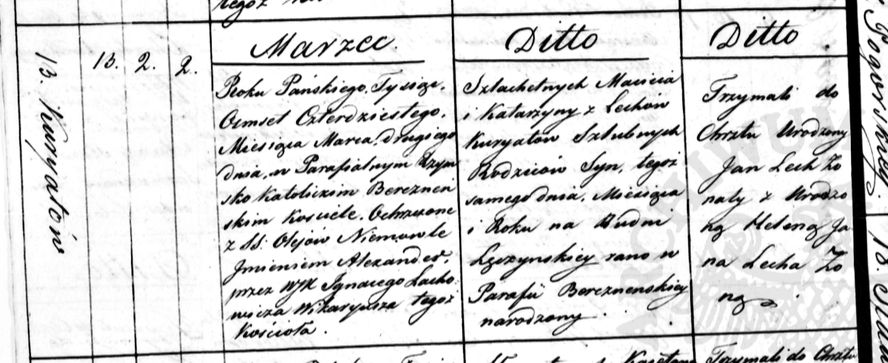 tegoż
Marzec.
Ditto
Ditto.
13. Kuryatów
13. 2. 2.
Roku Pańskiego, Tysiąc,
Ośmset Czterdziestego,
Miesiąca Marca, drugiego
dnia, w Parafialnym Rzym
sko Katolickim Berezneń
skim Kościele, Ochrzczone
z SS. Olejów Niemowle
Jmieniem Alexander,
przez WJX Ignacego Lacho
wicza Wikaryusza tegoż
Kościoła.
Szlachetnych Macieia
i Katarzyny z Lechów
Kuryatów Szlubnych
Rodziców Syn, tegoż
samego dnia, Miesiąca
i Roku na Rudni
Łęczynskiey rano w
Parafii Bereznenskiey
narodzony.
Trzymali do
Chrztu Urodzony
Jan Lech Żo
naty z Urodzo
ną Heleną Ja
na Lecha Żo
ną
Trzymali do Chrztu
ARCHIWUM